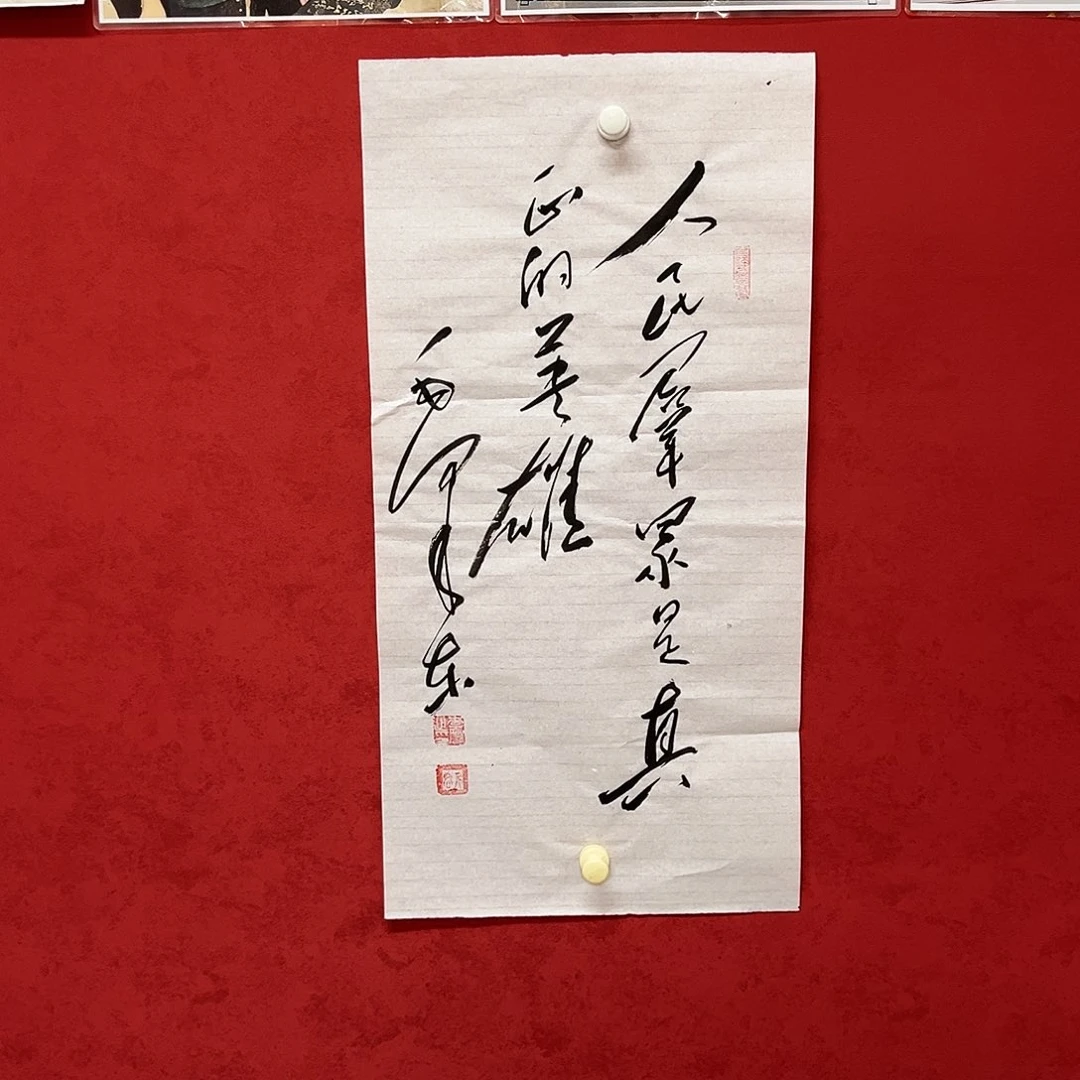 人民羣眾是真
正的英雄
毛泽东